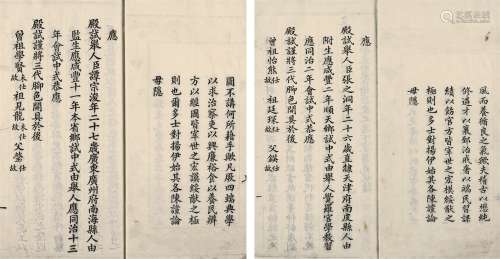 風而養循良之氣歟夫稽古以懋純
修選才以襄郅治戢暴以端民習課
績以飭官方皆宰世之宏模綏猷之
極則也多士對揚伊始其各陳讜論
毋隱
應
殿試舉人臣張之洞年二十六歲直隸天津府南皮縣人由
附生應咸豐二年順天鄉試中式由舉人覺羅官學教習
應同治二年會試中式恭應
殿試謹將三代腳色開具於後
曾祖怡熊仕故 祖廷琛仕故 父鍈仕故
圖不講何所藉手歟凡厥四端典學
以求治察吏以興廉裕食以養民
方以經國皆宰世之宏謨綏猷之極
則也爾多士對揚伊始其各陳讜論
毋隱
應
殿試舉人臣譚宗浚年二十七歲廣東廣州府南海縣人由
監生應咸豐十一年本省鄉試中式由舉人應同治十三
年會試中式恭應
殿試謹將三代腳色開具於後
曾祖學賢未仕故 祖見龍未仕故 父瑩仕故